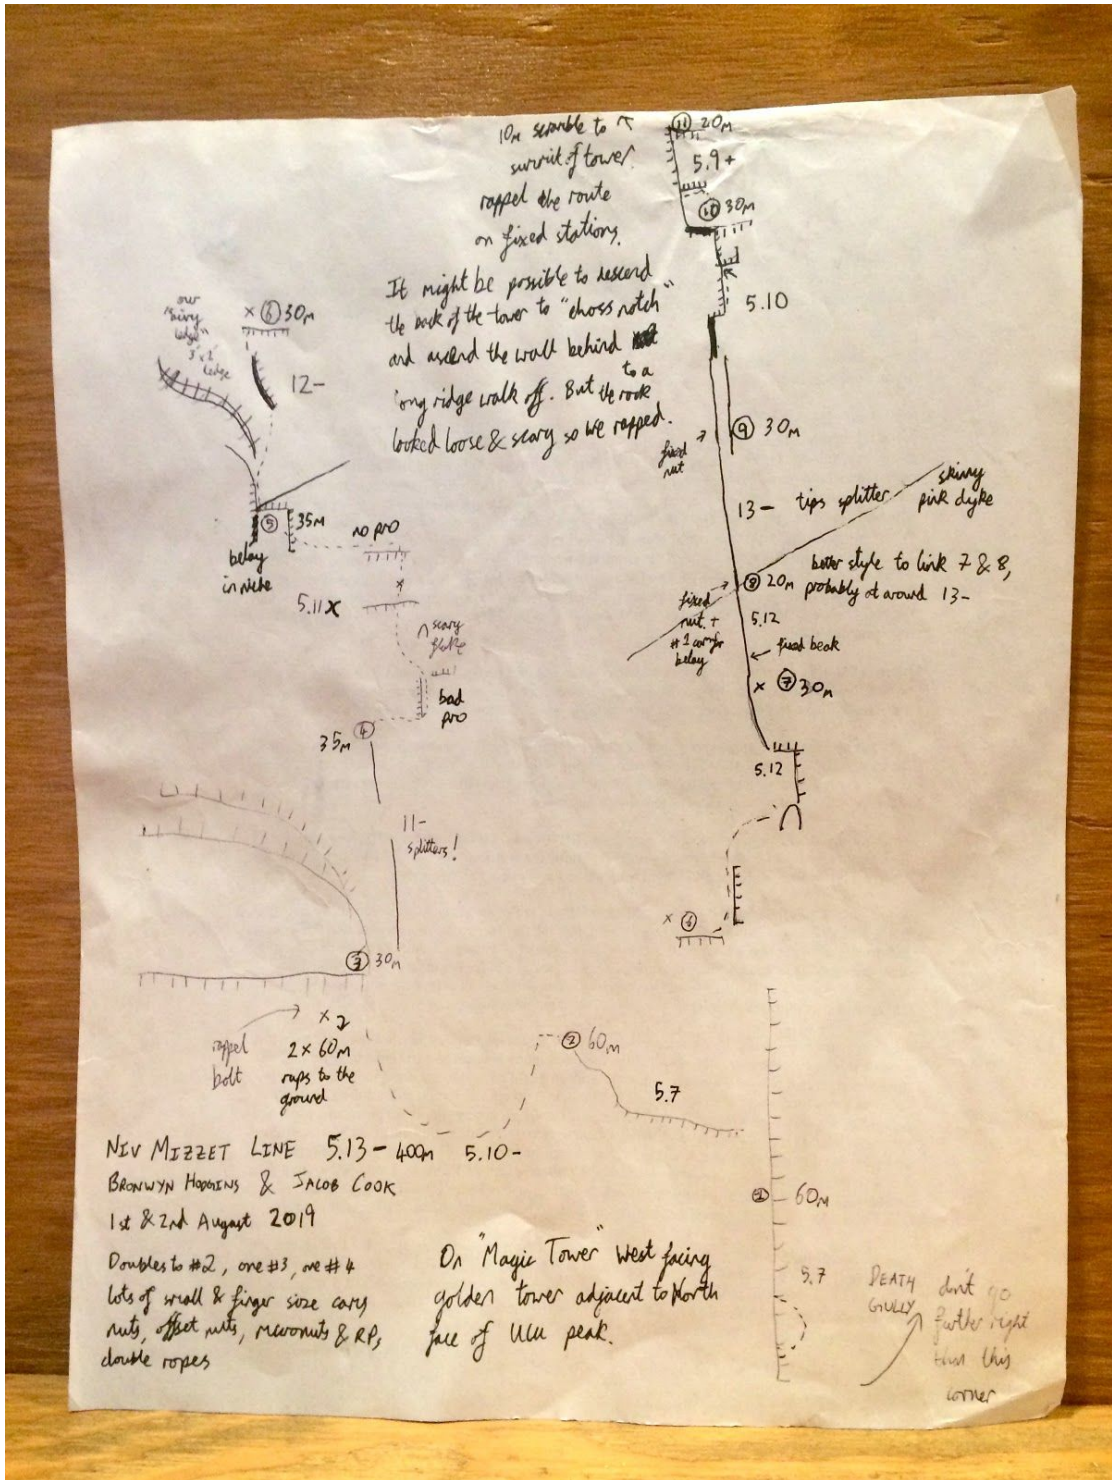 10m scramble to
summit of tower.
rappel the route
on fixed stations.
It might be possible to descend
the back of the tower to "choss notch"
and ascend the wall behind
to a
long ridge walk off. But the rock
looked loose & scary so we rapped.
11 20m
5.9+
10 30m
5.10
9 30m
fixed
nut
13- tips splitter
skinny
pink dyke
better style to link 7 & 8,
probably at around 13-
8 20m
fixed
nut +
#1 cam for
belay
5.12
fixed beak
x 7 30m
5.12
x 6
our
"bivy
ledge"
3' x 2'
ledge
x 6 30m
12-
5 35m
no pro
belay
in niche
x
5.11x
scary
flake
bad
pro
4
35m
11-
splitters!
3 30m
x 2
rappel
bolt
2 x 60m
raps to the
ground
2 60m
5.7
5.10-
1 60m
5.7
DEATH
GULLY
don't go
further right
than this
corner
NIV MIZZET LINE 5.13- 400m
BRONWYN HODGINS & JACOB COOK
1st & 2nd August 2019
Doubles to #2, one #3, one #4
lots of small & finger size cams,
nuts, offset nuts, micronuts & RPs,
double ropes
On "Magic Tower" West facing
golden tower adjacent to North
face of Ulu peak.